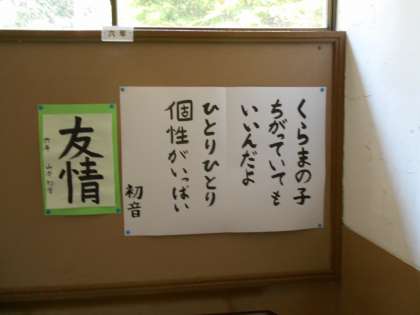 六年
くらまの子
ちがっていても
いいんだよ
ひとりひとり
個性がいっぱい
初音
友情
六年